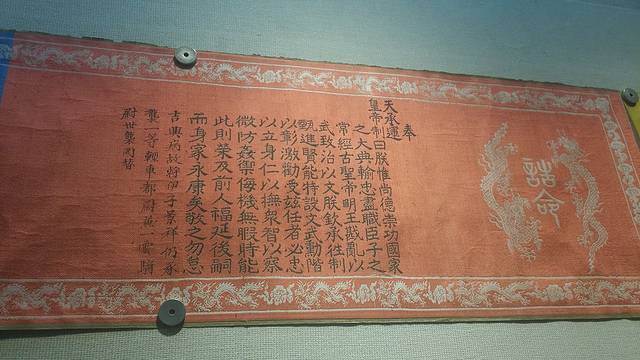 誥命
奉
天承運
皇帝制曰朕惟尚德崇功國家
之大典輸忠盡職臣子之
常經古聖帝明王戡亂以
武致治以文朕欽承往制
甄進賢能特設文武勳階
以彰激勸受茲任者必忠
以立身仁以撫眾智以察
微防姦禦侮機無暇時能
此則榮及前人福延後嗣
而身家永康矣敬之勿怠
吉興病故將伊子景祥仍承
襲一等輕車都尉兼一雲騎
尉世襲罔替